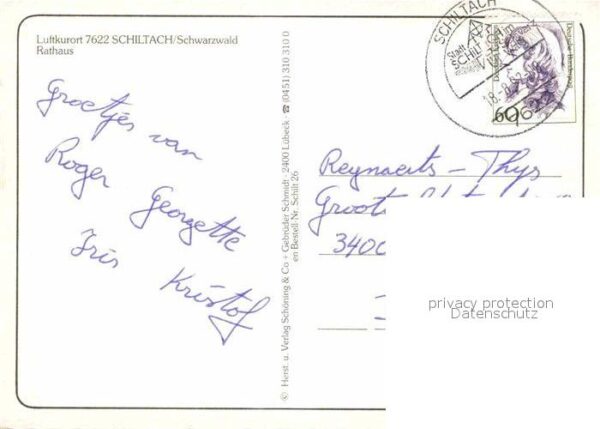 Luftkurort 7622 SCHILTACH/Schwarzwald
Rathaus
Groetjes van
Roger Georgette
Iris Kristof
© Herst. u. Verlag Schöning & Co + Gebrüder Schmidt · 2400 Lübeck · ☎ (0451) 310 310 0
en Bestell-Nr. Schilt 26
SCHILTACH
Stadt
SCHILTACH
60
Deutsche Bundespost
Reynaerts - Thys
Groote
3400
privacy protection
Datenschutz